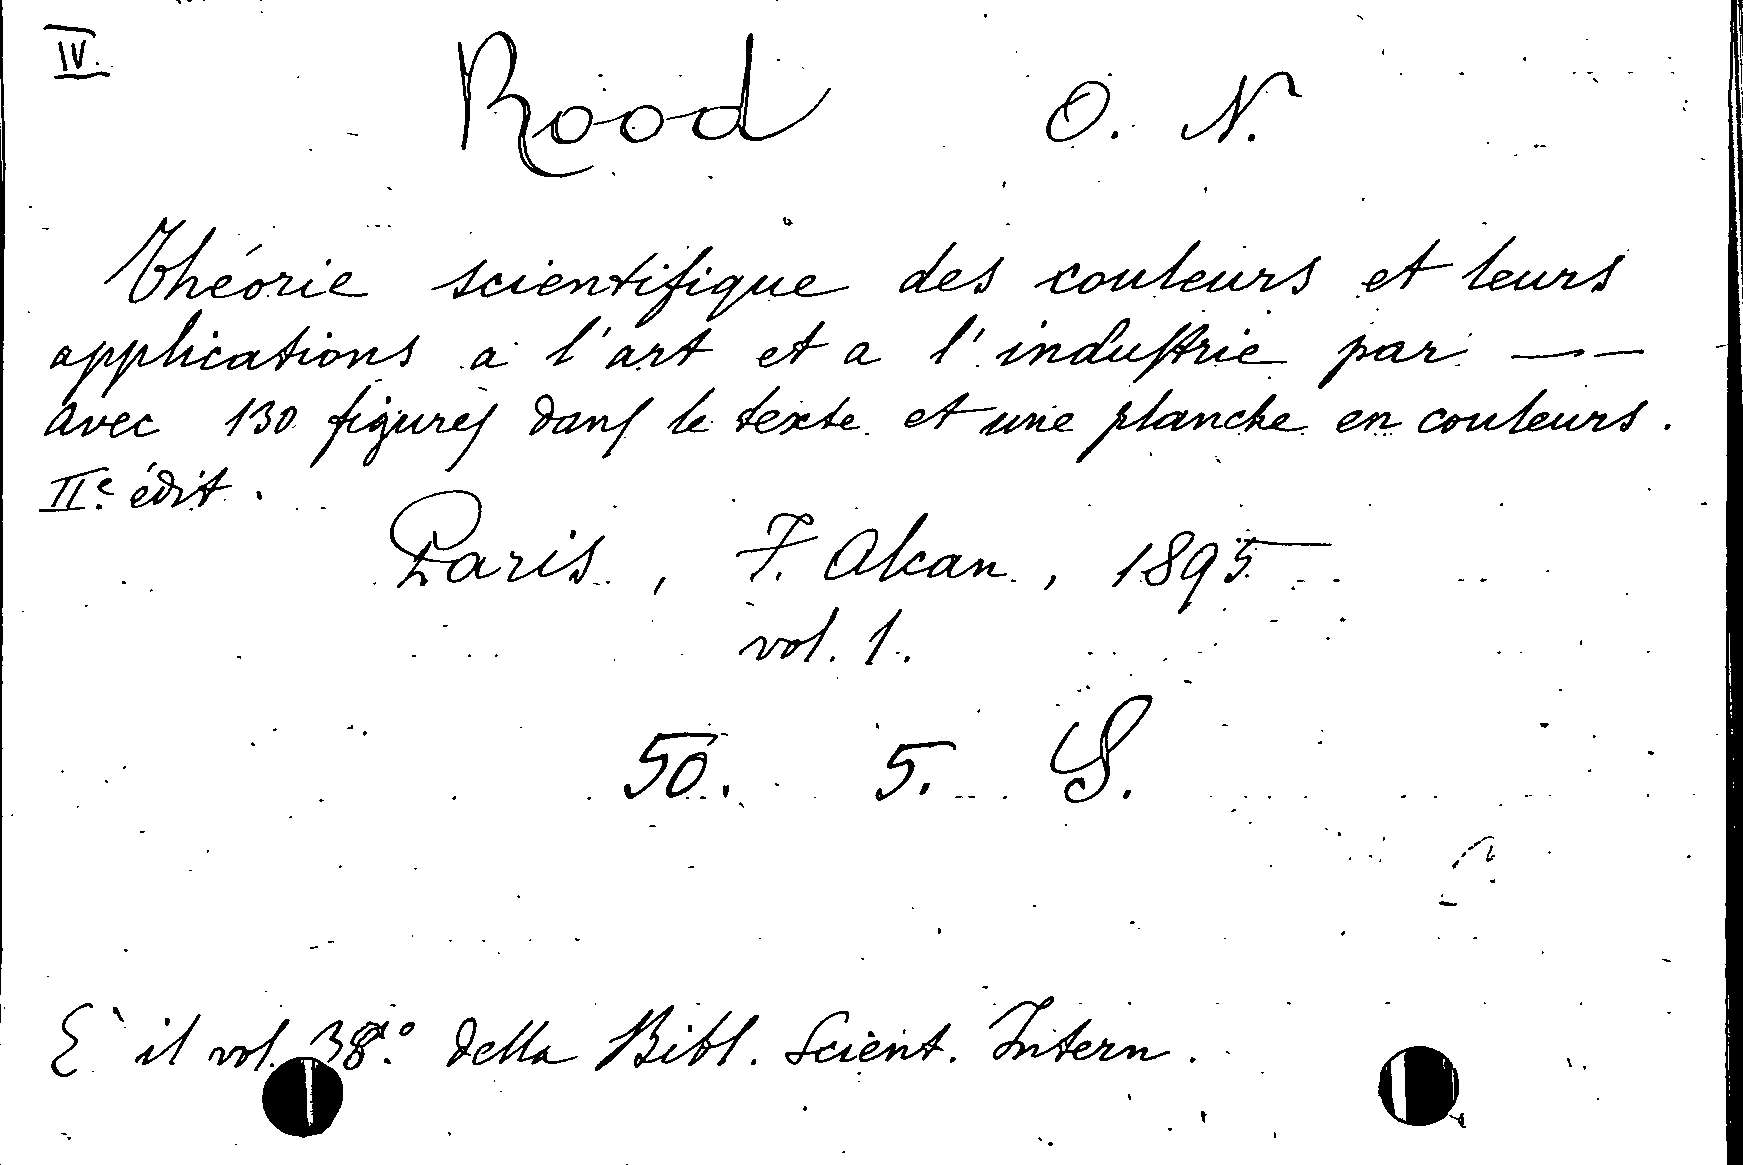 IV.
Rood O. N.
Théorie scientifique des couleurs et leurs
applications a l'art et a l'industrie par — —
avec 130 figures dans le texte et une planche en couleurs.
IIe édit.
Paris, F. Alcan, 1895
vol. 1.
50. 5. S.
E' il vol. 38.° della Bibl. Scient. Intern.